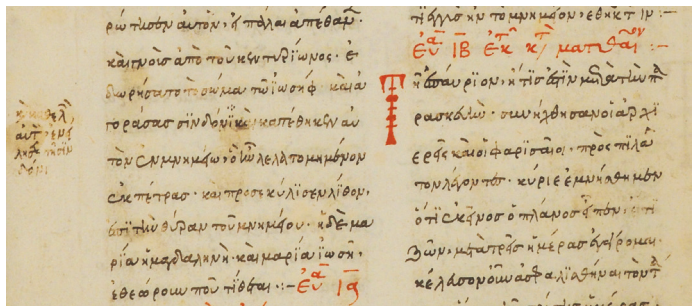 ρώτησεν αὐτὸν, εἰ πάλαι ἀπέθανεν.
καὶ γνοὺς ἀπὸ τοῦ κεντυρίωνος. ἐ
δωρήσατο τὸ σῶμα τῶ ἰωσήφ. καὶ ἀ
γοράσας σινδόνα καὶ καθελὼν αὐτὸν ἐνείλησε τῆ σινδόνι καὶ κατέθηκεν αὐ
τὸν ἐν μνημείω, ὃ ἦν λελατομημένον
ἐκ πέτρας. καὶ προσεκύλισεν λίθον,
ἐπὶ τὴν θύραν τοῦ μνημείου. ἡ δὲ μα
ρία ἡ μαγδαληνὴ. καὶ μαρία ἰωσῆ,
ἐθεώρουν ποῦ τίθεται:- Εὐα ΙΑ
τῆ ἐπαύριον, ἥτις ἐστὶν μετὰ τὴν πα
ρασκευὴν. συνήχθησαν οἱ ἀρχι
ερεῖς καὶ οἱ φαρισαῖοι. πρὸς πιλᾶτον
λέγοντες. κύριε ἐμνήσθημεν
ὅτι ἐκεῖνος ὁ πλάνος εἶπεν, ἔτι
ζῶν, μετὰ τρεῖς ἡμέρας ἐγείρομαι.
κέλευσον οὖν ἀσφαλισθῆναι τὸν τά